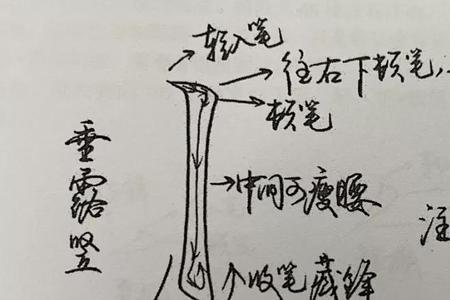 轻入笔
往右下顿笔，
顿笔
垂露竖
中间可瘦腰
注
收笔藏锋